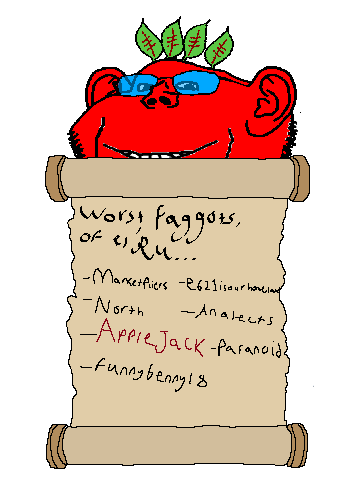 Worst faggots,
of el RU...
-Marketpliers -e621isourhomeland
-North -Analects
-AppleJack -Paranoid
-funnybenny18